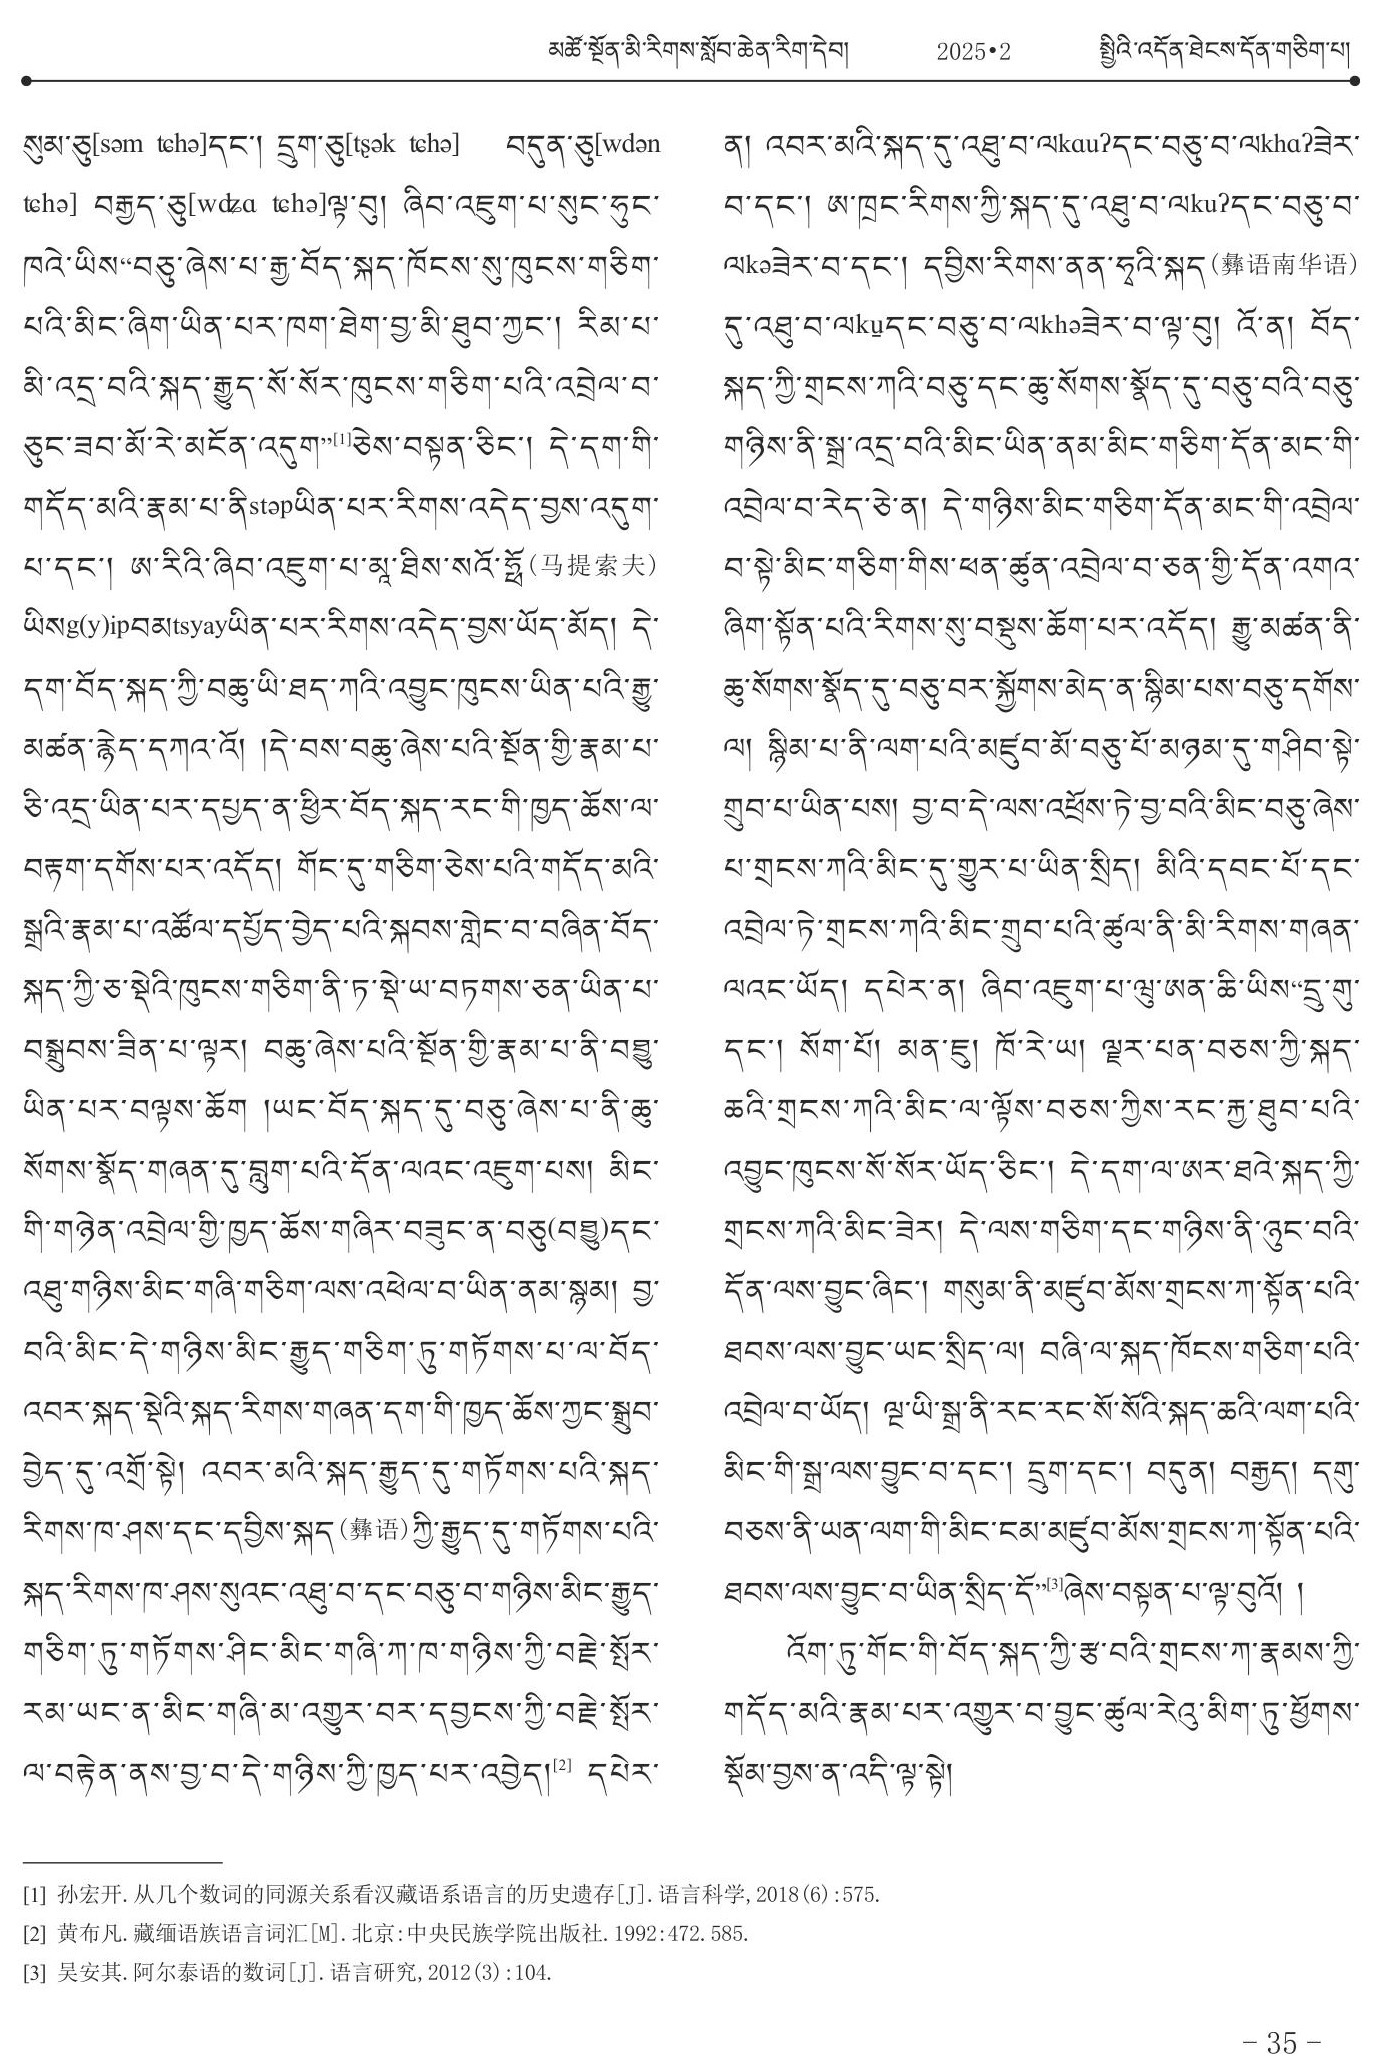 མཚོ་སྔོན་མི་རིགས་སློབ་ཆེན་རིག་དེབ། 2025•2 སྤྱིའི་འདོན་ཐེངས་དོན་གཅིག་པ།
སུམ་ཅུ[səm tɕhə]དང་། དྲུག་ཅུ[tʂək tɕhə] བདུན་ཅུ[wdən
tɕhə] བརྒྱད་ཅུ[wdʑɑ tɕhə]ལྟ་བུ། ཞིབ་འཇུག་པ་སུང་ཧུང་
ཁའེ་ཡིས“བཅུ་ཞེས་པ་རྒྱ་བོད་སྐད་ཁོངས་སུ་ཁུངས་གཅིག་
པའི་མིང་ཞིག་ཡིན་པར་ཁག་ཐེག་བྱ་མི་ཐུབ་ཀྱང་། རིམ་པ་
མི་འདྲ་བའི་སྐད་རྒྱུད་སོ་སོར་ཁུངས་གཅིག་པའི་འབྲེལ་བ་
ཅུང་ཟབ་མོ་རེ་མངོན་འདུག”[1]ཅེས་བསྟན་ཅིང་། དེ་དག་གི་
གདོད་མའི་རྣམ་པ་ནིstəpཡིན་པར་རིགས་འདེད་བྱས་འདུག་
པ་དང་། ཨ་རིའི་ཞིབ་འཇུག་པ་མཱ་ཐིས་སའོ་ཧྥོ(马提索夫)
ཡིསg(y)ipབམtsyayཡིན་པར་རིགས་འདེད་བྱས་ཡོད་མོད། དེ་
དག་བོད་སྐད་ཀྱི་བཆུ་ཡི་ཐད་ཀའི་འབྱུང་ཁུངས་ཡིན་པའི་རྒྱུ་
མཚན་རྙེད་དཀའ་འོ། །དེ་བས་བཆུ་ཞེས་པའི་སྔོན་གྱི་རྣམ་པ་
ཅི་འདྲ་ཡིན་པར་དཔྱད་ན་ཕྱིར་བོད་སྐད་རང་གི་ཁྱད་ཆོས་ལ་
བརྟག་དགོས་པར་འདོད། གོང་དུ་གཅིག་ཅེས་པའི་གདོད་མའི་
སྒྲའི་རྣམ་པ་འཚོལ་དཔྱོད་བྱེད་པའི་སྐབས་གླེང་བ་བཞིན་བོད་
སྐད་ཀྱི་ཅ་སྡེའི་ཁུངས་གཅིག་ནི་ཏ་སྡེ་ཡ་བཏགས་ཅན་ཡིན་པ་
བསྒྲུབས་ཟིན་པ་ལྟར། བཆུ་ཞེས་པའི་སྔོན་གྱི་རྣམ་པ་ནི་བཐྱུ་
ཡིན་པར་བལྟས་ཆོག །ཡང་བོད་སྐད་དུ་བཅུ་ཞེས་པ་ནི་ཆུ་
སོགས་སྣོད་གཞན་དུ་བླུག་པའི་དོན་ལའང་འཇུག་པས། མིང་
གི་གཉེན་འབྲེལ་གྱི་ཁྱད་ཆོས་གཞིར་བཟུང་ན་བཅུ(བཐྱུ)དང་
འཐུ་གཉིས་མིང་གཞི་གཅིག་ལས་འཕེལ་བ་ཡིན་ནམ་སྙམ། བྱ་
བའི་མིང་དེ་གཉིས་མིང་རྒྱུད་གཅིག་ཏུ་གཏོགས་པ་ལ་བོད་
འབར་སྐད་སྡེའི་སྐད་རིགས་གཞན་དག་གི་ཁྱད་ཆོས་ཀྱང་སྒྲུབ་
བྱེད་དུ་འགྲོ་སྟེ། འབར་མའི་སྐད་རྒྱུད་དུ་གཏོགས་པའི་སྐད་
རིགས་ཁ་ཤས་དང་དབྱིས་སྐད(彝语)ཀྱི་རྒྱུད་དུ་གཏོགས་པའི་
སྐད་རིགས་ཁ་ཤས་སུའང་འཐུ་བ་དང་བཅུ་བ་གཉིས་མིང་རྒྱུད་
གཅིག་ཏུ་གཏོགས་ཤིང་མིང་གཞི་ཀ་ཁ་གཉིས་ཀྱི་བརྗེ་སྤོར་
རམ་ཡང་ན་མིང་གཞི་མ་འགྱུར་བར་དབྱངས་ཀྱི་བརྗེ་སྤོར་
ལ་བརྟེན་ནས་བྱ་བ་དེ་གཉིས་ཀྱི་ཁྱད་པར་འབྱེད།[2] དཔེར་
ན། འབར་མའི་སྐད་དུ་འཐུ་བ་ལkɑuʔདང་བཅུ་བ་ལkhɑʔཟེར་
བ་དང་། ཨ་ཁྲང་རིགས་ཀྱི་སྐད་དུ་འཐུ་བ་ལkuʔདང་བཅུ་བ་
ལkəཟེར་བ་དང་། དབྱིས་རིགས་ནན་ཧྭའི་སྐད(彝语南华语)
དུ་འཐུ་བ་ལku̠དང་བཅུ་བ་ལkhəཟེར་བ་ལྟ་བུ། འོ་ན། བོད་
སྐད་ཀྱི་གྲངས་ཀའི་བཅུ་དང་ཆུ་སོགས་སྣོད་དུ་བཅུ་བའི་བཅུ་
གཉིས་ནི་སྒྲ་འདྲ་བའི་མིང་ཡིན་ནམ་མིང་གཅིག་དོན་མང་གི་
འབྲེལ་བ་རེད་ཅེ་ན། དེ་གཉིས་མིང་གཅིག་དོན་མང་གི་འབྲེལ་
བ་སྟེ་མིང་གཅིག་གིས་ཕན་ཚུན་འབྲེལ་བ་ཅན་གྱི་དོན་འགའ་
ཞིག་སྟོན་པའི་རིགས་སུ་བསྡུས་ཆོག་པར་འདོད། རྒྱུ་མཚན་ནི་
ཆུ་སོགས་སྣོད་དུ་བཅུ་བར་སྐྱོགས་མེད་ན་སྙིམ་པས་བཅུ་དགོས་
ལ། སྙིམ་པ་ནི་ལག་པའི་མཛུབ་མོ་བཅུ་པོ་མཉམ་དུ་གཤིབ་སྟེ་
གྲུབ་པ་ཡིན་པས། བྱ་བ་དེ་ལས་འཕྲོས་ཏེ་བྱ་བའི་མིང་བཅུ་ཞེས་
པ་གྲངས་ཀའི་མིང་དུ་གྱུར་པ་ཡིན་སྲིད། མིའི་དབང་པོ་དང་
འབྲེལ་ཏེ་གྲངས་ཀའི་མིང་གྲུབ་པའི་ཚུལ་ནི་མི་རིགས་གཞན་
ལའང་ཡོད། དཔེར་ན། ཞིབ་འཇུག་པ་ཝུ་ཨན་ཆི་ཡིས“དྲུ་གུ་
དང་། སོག་པོ། མན་ཇུ། ཁོ་རེ་ཡ། ལྗར་པན་བཅས་ཀྱི་སྐད་
ཆའི་གྲངས་ཀའི་མིང་ལ་ལྟོས་བཅས་ཀྱིས་རང་རྐྱ་ཐུབ་པའི་
འབྱུང་ཁུངས་སོ་སོར་ཡོད་ཅིང་། དེ་དག་ལ་ཨར་ཐའེ་སྐད་ཀྱི་
གྲངས་ཀའི་མིང་ཟེར། དེ་ལས་གཅིག་དང་གཉིས་ནི་ཉུང་བའི་
དོན་ལས་བྱུང་ཞིང་། གསུམ་ནི་མཛུབ་མོས་གྲངས་ཀ་སྟོན་པའི་
ཐབས་ལས་བྱུང་ཡང་སྲིད་ལ། བཞི་ལ་སྐད་ཁོངས་གཅིག་པའི་
འབྲེལ་བ་ཡོད། ལྔ་ཡི་སྒྲ་ནི་རང་རང་སོ་སོའི་སྐད་ཆའི་ལག་པའི་
མིང་གི་སྒྲ་ལས་བྱུང་བ་དང་། དྲུག་དང་། བདུན། བརྒྱད། དགུ་
བཅས་ནི་ཡན་ལག་གི་མིང་ངམ་མཛུབ་མོས་གྲངས་ཀ་སྟོན་པའི་
ཐབས་ལས་བྱུང་བ་ཡིན་སྲིད་དོ”[3]ཞེས་བསྟན་པ་ལྟ་བུའོ། །
འོག་ཏུ་གོང་གི་བོད་སྐད་ཀྱི་རྩ་བའི་གྲངས་ཀ་རྣམས་ཀྱི་
གདོད་མའི་རྣམ་པར་འགྱུར་བ་བྱུང་ཚུལ་རེའུ་མིག་ཏུ་ཕྱོགས་
སྡོམ་བྱས་ན་འདི་ལྟ་སྟེ།
[1] 孙宏开. 从几个数词的同源关系看汉藏语系语言的历史遗存[J]. 语言科学, 2018(6):575.
[2] 黄布凡. 藏缅语族语言词汇[M]. 北京:中央民族学院出版社. 1992:472. 585.
[3] 吴安其. 阿尔泰语的数词[J]. 语言研究, 2012(3):104.
- 35 -